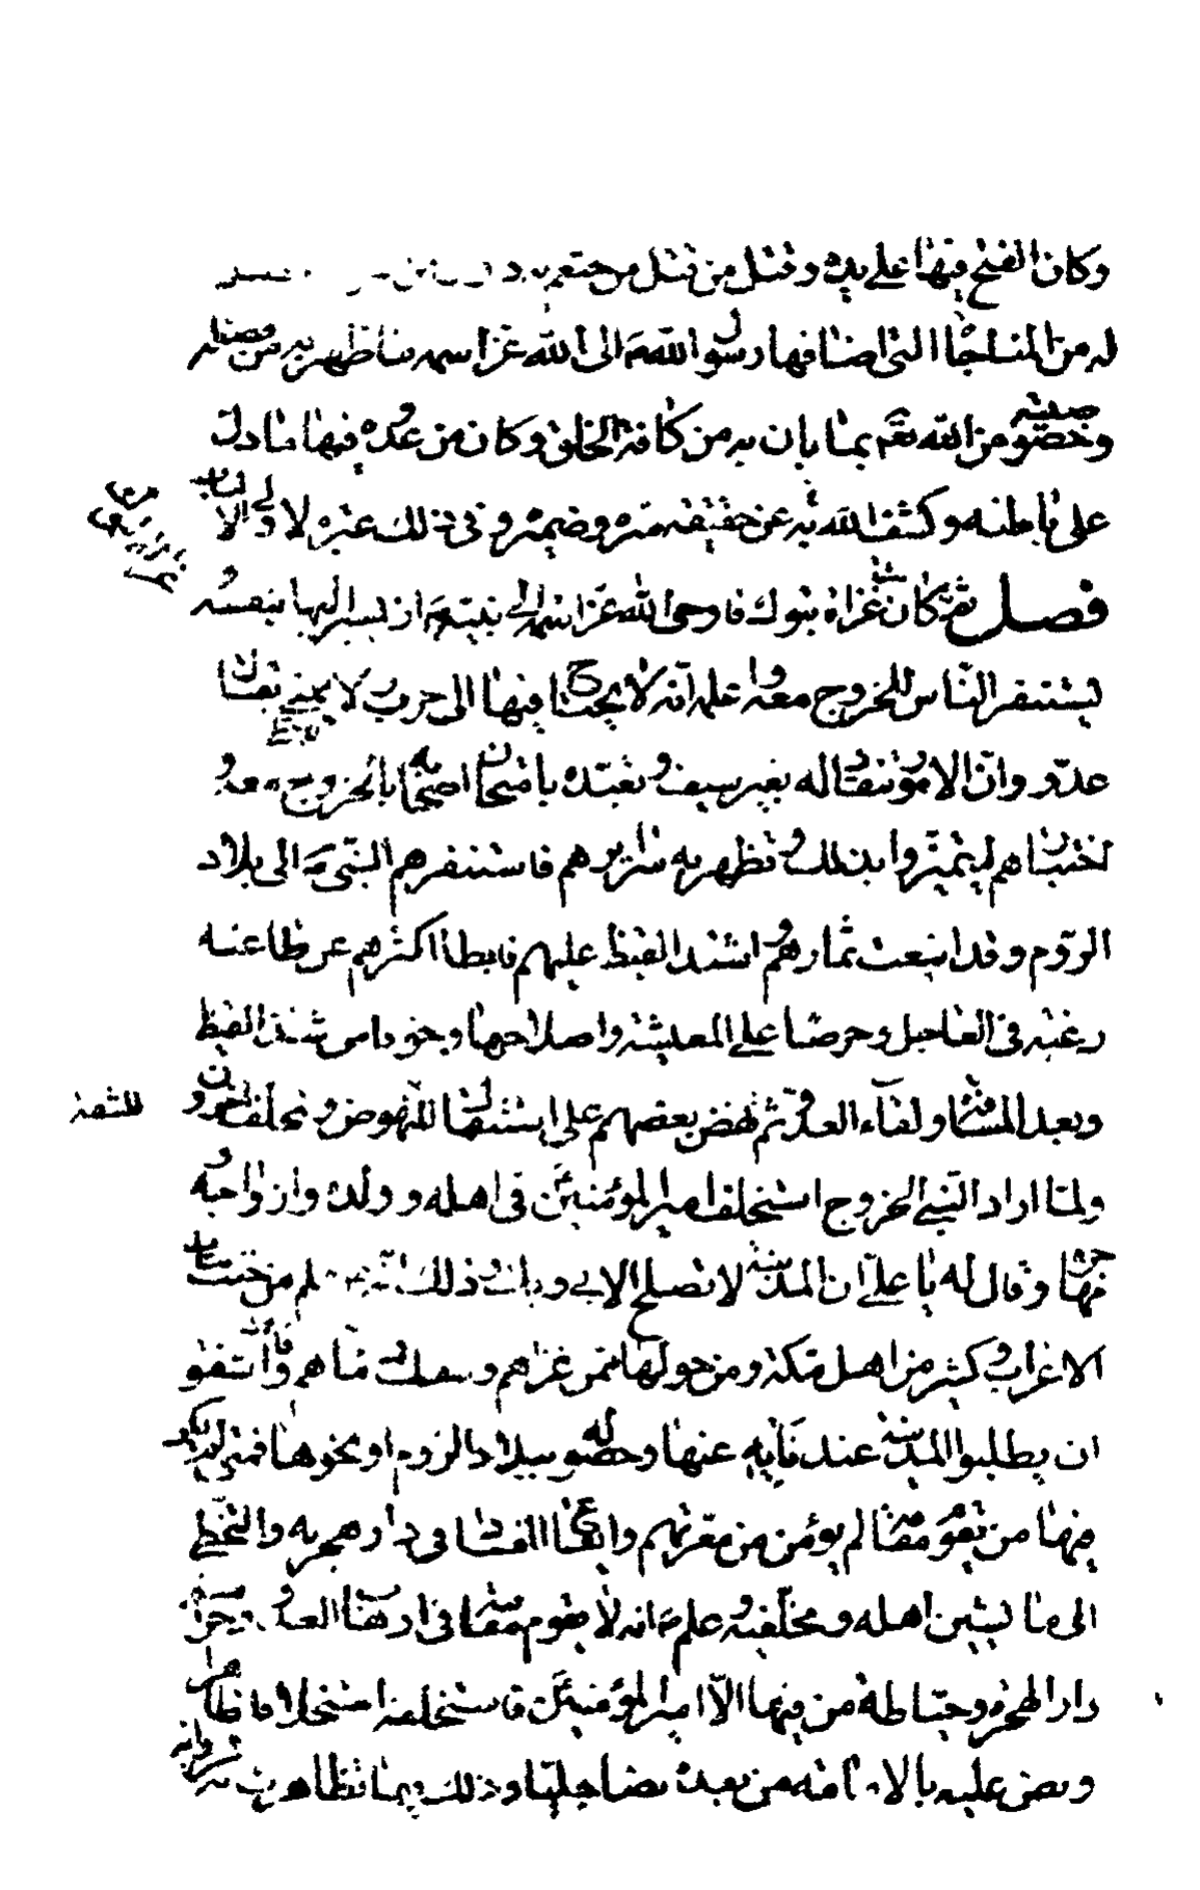 وكان الفتح فيها على يده وقتل من قتل من خثعم
له من المناجاة التي اضافها رسول الله ص الى الله عز اسمه ما ظهر به من فضله
وخصوصيته من الله تعم بما بان به من كافة الخلق وكان من عدوه فيها ما دل
على باطنه وكشف الله به عن حقيقة سره وضميره وفي ذلك عبرة لاولي الالباب
غزوة تبوك
فصل ثم كان غزاة تبوك فاوحى الله عز اسمه الى نبيه ص ان يسير اليها بنفسه
يستنفر الناس للخروج معه واعلمه انه لا يحتاج فيها الى حرب ولا يمنى بقتال
عدو وان الامور تنقاد له بغير سيف وتعبده بامتحان اصحابه بالخروج معه و
اختبارهم ليتميزوا بذلك وتظهر به سرايرهم فاستنفرهم النبي ص الى بلاد
الروم وقد اينعت ثمارهم واشتد القيظ عليهم فابطا اكثرهم عن طاعته
رغبة في العاجل وحرصا على المعيشة واصلاحها وخوفا من شدة القيظ
وبعد المسافة ولقاء العدو ثم نهض بعضهم على استثقال للنهوض وتخلف اخرون
للشقة
ولما اراد النبي الخروج استخلف امير المؤمنين في اهله وولده وازواجه و
مهاجره وقال له يا علي ان المدينة لا تصلح الا بي او بك وذلك انه علم من خبث نيات
الاعراب وكثير من اهل مكة ومن حولها ممن غزاهم وسفك دماءهم فاشفق
ان يطلبوا المدينة عند نايه عنها وحصوله ببلاد الروم او نحوها فمتى لم يكن
فيها من يقوم مقامه لم يؤمن من معرتهم وايقاع الفساد في دار هجرته والتخطي
الى ما يشين اهله ومخلفيه وعلم ص انه لا يقوم مقامه في ارهاب العدو وحراسة
دار الهجرة وحياطة من فيها الا امير المؤمنين فاستخلفه استخلافا ظاهرا
ونص عليه بالامامة من بعده نصا جليا وذلك فيما تظاهرت به الرواية